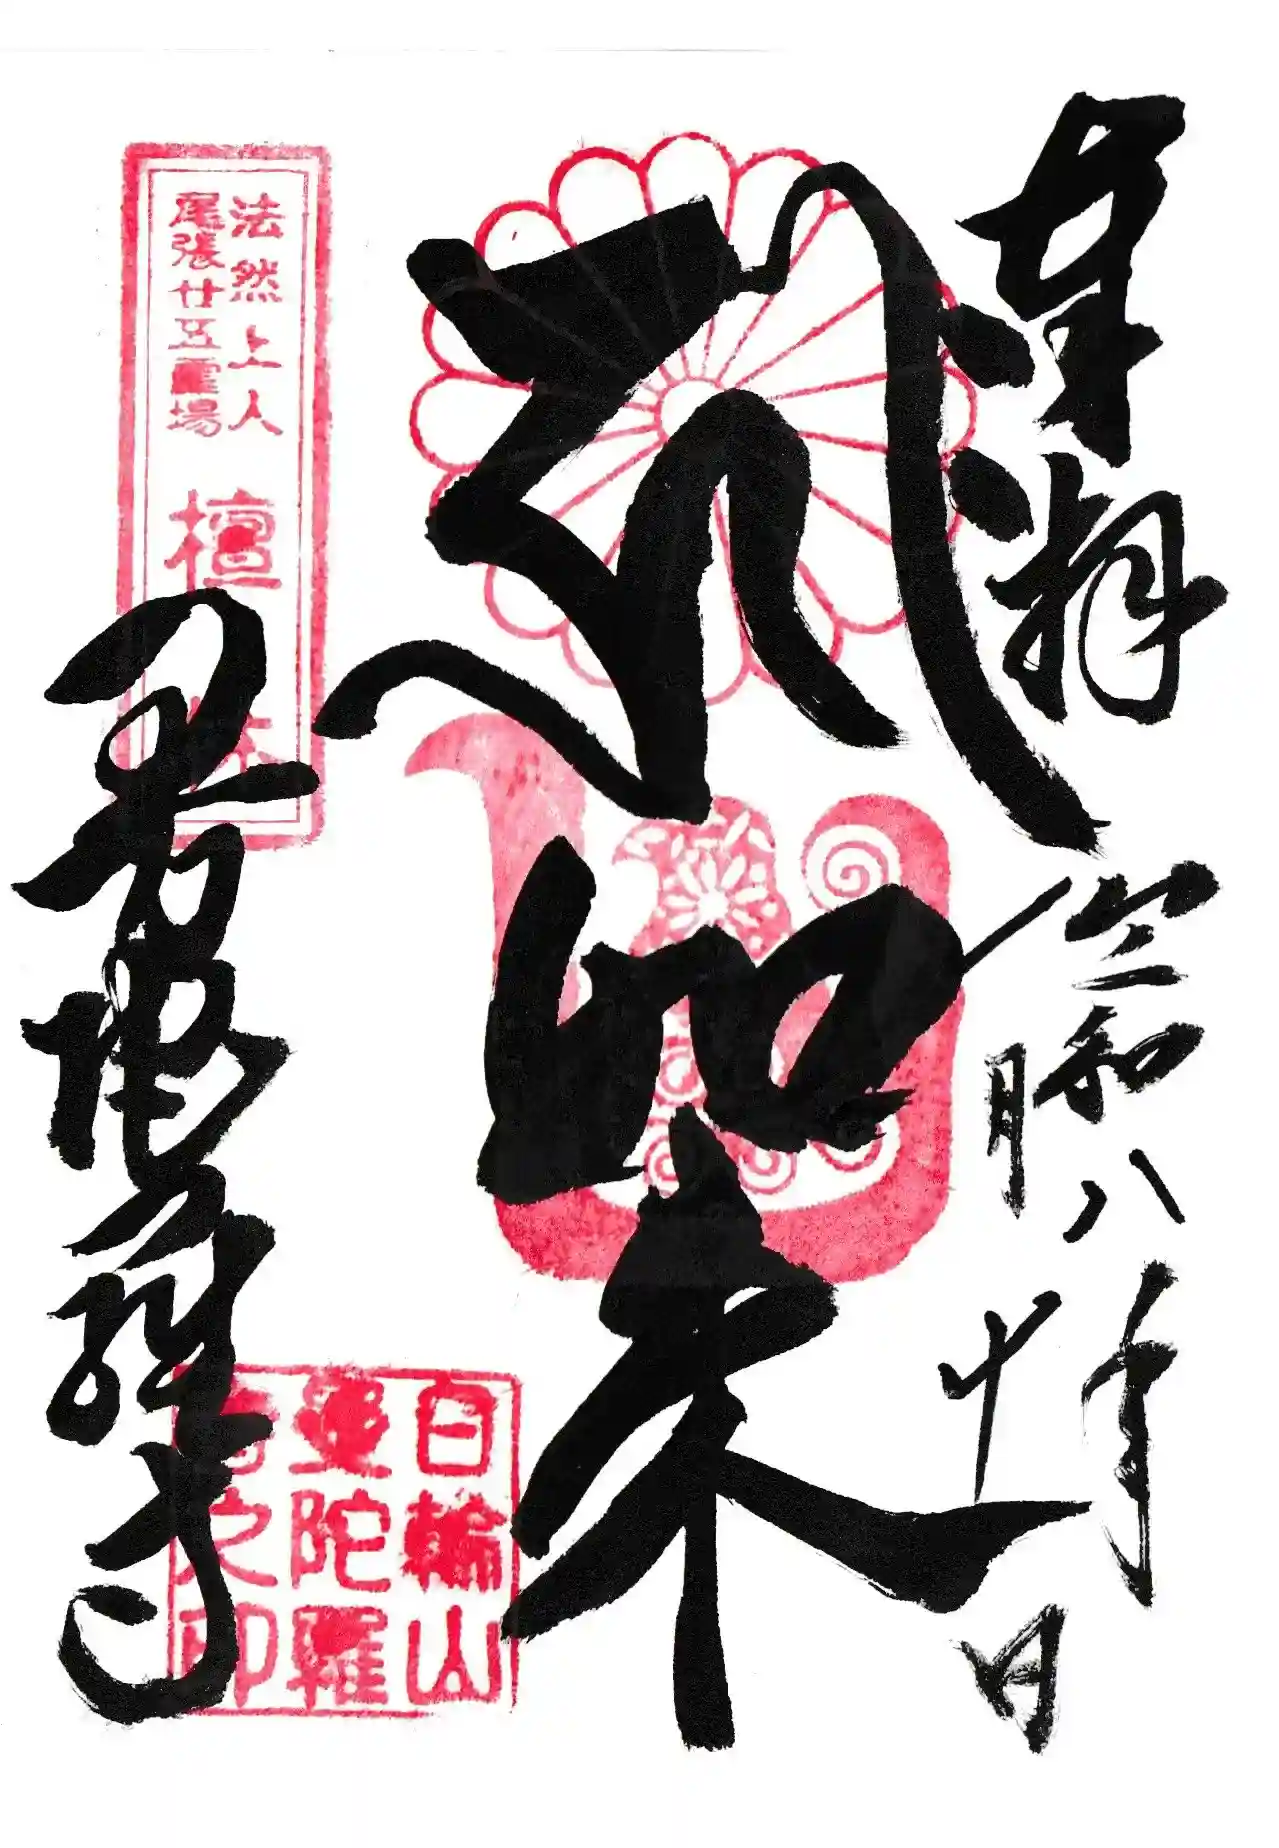 奉拝
令和八年
月十日
如来
法然上人
尾張廿五霊場
檀林
曼陀羅寺
日輪山
曼陀羅
寺之印